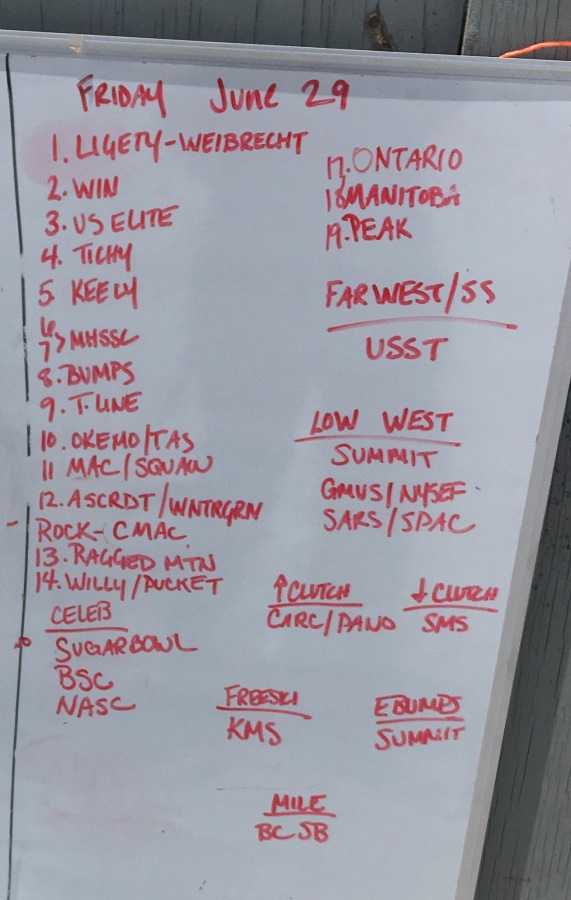 FRIDAY JUNE 29
1. LIGETY-WEIBRECHT
2. WIN
3. US ELITE
4. TICHY
5. KEELY
6
7 > MHSSC
8. BUMPS
9. T-LINE
10. OKEMO/TAS
11 MAC/SQUAW
12. ASCRDT/WNTRGRN
- ROCK-CMAC
13. RAGGED MTN
14. WILLY/PUCKET
CELEB
SUGARBOWL
BSC
NASC
17. ONTARIO
18 MANITOBA
19. PEAK
FAR WEST/SS
USST
LOW WEST
SUMMIT
GMVS/NYSEF
SARS/SPAC
↑CLUTCH
CIRC/PANO
↓CLUTCH
SMS
FREESKI
KMS
E BUMPS
SUMMIT
MILE
BC SB